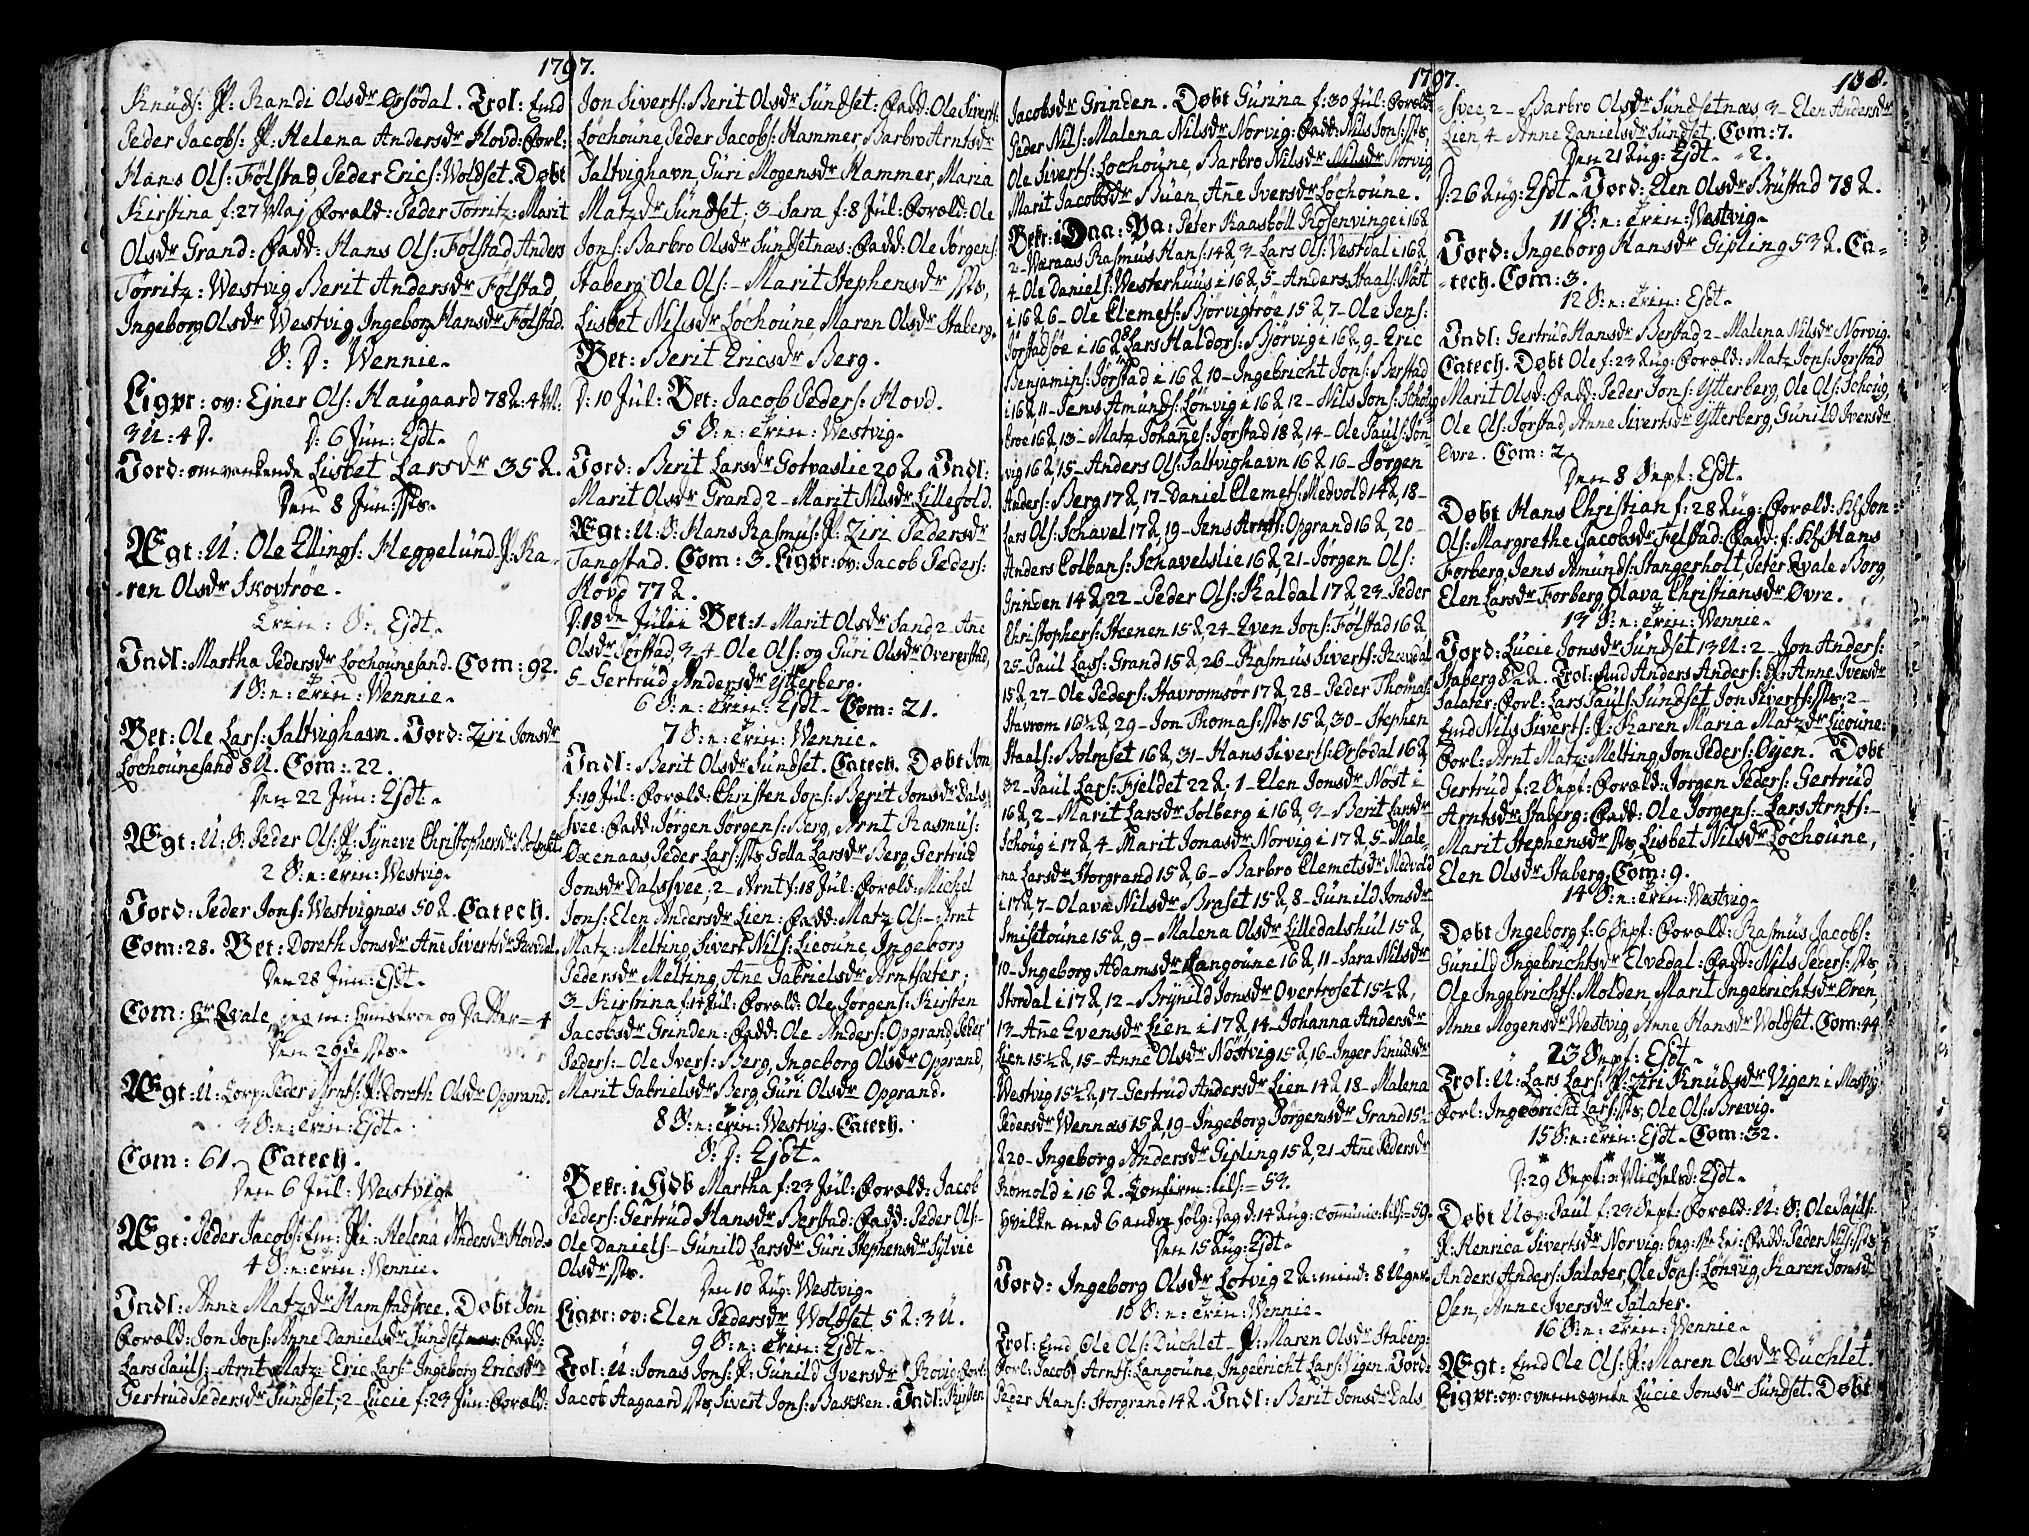 1797.
Knuds: P: Randi Olsdr Örsödal. Trol: Emd
Peder Jacobs: P: Helena Andersdr Hovd: Forl:
Hans Ols: Fölstad, Peder Erics: Woldset. Døbt
Kirstina f: 27 Maj Foræld: Peder Törritz: Marit
Olsdr Grand: Fadd: Hans Ols: Fölstad, Anders
Törritz: Westvig, Berit Andersdr Fölstad,
Ingeborg Olsdr Westvig, Ingeborg Hansdr Fölstad.
S: D: Wennie.
Ligpr: ov: Ejner Ols: Haugaard 78 A: 4 M:
3 U: 4 D. D: 6 Jun: Ejdt.
Jord: omvankende Lisbet Larsdr 35 A.
Den 8 Jun: sts.
Ægt: U: Ole Ellings: Heggelund P: Ka-
-ren Olsdr Skovtröe.
Trin: S: Ejdt.
Indl: Martha Pedersdr Lochounesand. Com: 92.
1 S: n: Trin: Wennie.
Bet: Ole Lars: Saltvighavn. Jord: Ziri Jonsdr
Lochounesand 8 U. Com: 22.
Den 22 Jun: Ejdt.
Ægt: U: S: Peder Ols: P: Syneve Christophersdr Bolmset.
2 S: n: Trin: Westvig.
Jord: Peder Jons: Westvignæs 50 A. Catech.
Com: 28. Bet: Doreth Jonsdr Anne Sivertsdr Ravdal.
Den 28 Jun: Ejdt.
Com: Hr Kvale, og Datter = 4
Den 29de sts.
Ægt: U: Corp: Peder Arnts: P: Doreth Olsdr Opgrand.
3 S: n: Trin: Ejdt.
Com: 61. Catech.
Den 6 Jul: Westvig.
Ægt: Peder Jacobs: Em: P: Helena Andersdr Hovd.
4 S: n: Trin: Wennie.
Indl: Anne Matzdr Hamstadsvee. Døbt Jon
Foræld: Jon Jons: Anne Danielsdr Sundset: Fadd:
Lars Pauls: Arnt Matz: Eric Lars: Ingeborg Ericsdr
Gertrud Pedersdr Sundset; 2 - Lucie f: 23 Jun: Foræld:
Jon Siverts: Berit Olsdr Sundset: Fadd: Ole Siverts:
Lochoune, Peder Jacobs: Hammer, Barbro Arntsdr
Saltvighavn, Guri Mogensdr Hammer, Maria
Matzdr Sundset; 3 - Sara f: 8 Jul: Foræld: Ole
Jons: Barbro Olsdr Sundsetnæs: Fadd: Ole Jørgens:
Staberg, Ole Ols: - Marit Stephensdr sts,
Lisbet Nilsdr Lochoune, Maren Olsdr Staberg.
Bet: Berit Ericsdr Berg.
D: 10 Jul: Bet: Jacob Peders: Hovd.
5 S: n: Trin: Westvig.
Jord: Berit Larsdr Gotvaslie 20 A. Indl:
Marit Olsdr Grand 2 - Marit Nilsdr Lillefold.
Ægt: U: S: Hans Rasmus: P: Ziri Pedersdr
Tangstad. Com: 3. Ligpr: ov: Jacob Peders:
Hovd 77 A.
D: 18de Julii Bet: 1 Marit Olsdr Sand, 2 - Ane
Olsdr Jørstad, 3-4 - Ole Ols: og Guri Olsdr Overerstad,
5 - Gertrud Andersdr Ytterberg.
6 S: n: Trin: Ejdt. Com: 21.
7 S: n: Trin: Wennie.
Indl: Berit Olsdr Sundset. Catech. Døbt Jon
f: 19 Jul: Foræld: Christen Jons: Berit Jonsdr Dals-
svee: Fadd: Jørgen Jørgens: Berg, Arnt Rasmus:
Oxenaas, Peder Lars: sts Golla Larsdr Berg, Gertrud
Jonsdr Dalssvee; 2 - Arnt f: 18 Jul: Foræld: Michel
Jons: Elen Andersdr Lien: Fadd: Matz Ols - Arnt
Matz: Melting, Sivert Nils: Lieoune, Ingeborg
Pedersdr Melting, Ane Gabrielsdr Arntsater;
3 - Kirstina f: 14 Jul: Foræld: Ole Jørgens: Kirsten
Jacobsdr Grinden: Fadd: Ole Anders: Opgrand, Peder
Peders: - Ole Ivers: Berg, Ingeborg Olsdr Opgrand,
Marit Gabrielsdr Berg, Guri Olsdr Opgrand.
8 S: n: Trin: Westvig. Catech.
S: D: Ejdt.
Bekr: i Hdb Martha f: 23 Jul: Foræld: Jacob
Peders: Gertrud Hansdr Berstad: Fadd: Peder Ols:
Ole Daniels - Gunild Larsdr Guri Stephensdr Sylvie
Olsdr sts.
Den 10 Aug: Westvig.
Ligpr: ov: Elen Pedersdr Woldset 5 A: 3 U.
9 S: n: Trin: Ejdt.
Trol: U: Jonas Jons: P: Gunild Iversdr Forl:
Jacob Aagaard sts, Sivert Jons: Bakken. Indl: Kirsten
1797.
138.
Jacobsdr Grinden. Døbt Gurina f: 30 Jul: Foræld:
Peder Nils: Malena Nilsdr Norvig: Fadd: Nils Jons: sts,
Ole Siverts: Lochoune, Barbro Nilsdr Norvig,
Marit Jacobsdr Buan, Ane Iversdr Lochoune.
Bekr: i Daa: Pa: Peter Kaasböll Rosenvinge i 16 A
2 - Waraas Rasmus Hans: 14 A 3 - Lars Ols: Vestdal i 16 A,
4 - Ole Daniels: Westerhuus i 16 A, 5 - Anders Staals: Nöst
i 16 A 6 - Ole Clemets: Björvigtröe 15 A 7 - Ole Jens:
Jørstadsøe i 16 A 8 Lars Haldors: Björvig i 16 A, 9 - Eric
Benjamins: Jørstad i 16 A 10 - Ingebricht Jons: Berstad
i 16 A, 11 - Jens Amunds: Lönvig i 16 A 12 - Nils Jons: Schoug
troe 16 A, 13 - Matz Johanes: Jørstad 18 A, 14 - Ole Pauls: Jøn-
vig 16 A, 15 - Anders Ols: Saltvighavn 16 A 16 - Jørgen
Anders: Berg 17 A, 17 - Daniel Clemets: Medvold 14 A, 18 -
Lars Ols: Schavel 17 A, 19 - Jens Arnts: Opgrand 16 A, 20 -
Anders Colbans: Schavelslie 16 A, 21 - Jørgen Ols:
Grinden 14 A, 22 - Peder Ols: Kaldal 17 A 23 - Peder
Christophers: Steenen 15 A, 24 - Even Jons: Fölstad 16 A,
25 - Paul Lars: Grand 15 A, 26 - Rasmus Siverts: Ravdal
15 A, 27 - Ole Peders: Stavromsör 17 A, 28 - Peder Thomas:
Stavrom 16½ A, 29 - Jon Thomas: sts 15 A, 30 - Stephen
Staals: Bolmset 16 A, 31 - Hans Siverts: Örsödal 16 A,
32 - Paul Lars: Fjeldet 22 A; 1 - Elen Jonsdr Nöst i
16 A, 2 - Marit Larsdr Solberg i 16 A 3 - Berit Larsdr
Schoug i 17 A, 4 - Marit Jonasdr Norvig i 17 A, 5 - Male-
na Larsdr Storgrand 15 A, 6 - Barbro Clemetsdr Medvold
i 17 A, 7 - Olava Nilsdr Braset 15 A, 8 - Gunild Jonsdr
Smisetoune 15 A, 9 - Malena Olsdr Lilledalshul 15 A,
10 - Ingeborg Adamsdr Langoune 16 A, 11 - Sara Nilsdr
Stordal i 17 A, 12 - Brynild Jonsdr Overtroset 15½ A,
13 - Ane Evensdr Lien i 17 A 14 - Johanna Andersdr
Lien 15½ A, 15 - Anne Olsdr Nöstvig 15 A, 16 - Inger Knudsdr
Westvig 15½ A, 17 - Gertrud Andersdr Lien 14 A 18 - Malena
Pedersdr Wennæs 15 A, 19 - Ingeborg Jørgensdr Grand 15½
A 20 - Ingeborg Andersdr Gipling 15 A, 21 - Ane Pedersdr
Romold i 16 A. Confirm: tils: = 53.
Hvilke med 6 andre følg: Dag d: 14 Aug: communic: tils: = 59.
Den 15 Aug: Ejdt.
Jord: Ingeborg Olsdr Lotvig 2 A: mind: 8 Uger.
10 S: n: Trin: Wennie.
Trol: Emd Ole Ols: Duchlet - P: Maren Olsdr Staberg:
Forl: Jacob Arnts: Langoune, Ingebricht Lars: Vigen. Jord:
Peder Hans: Storgrand 14 A. Indl: Berit Jonsdr Dals-
-svee, 2 - Barbro Olsdr Sundsetnæs, 3 - Elen Andersdr
Lien, 4 - Anne Danielsdr Sundset. Com: 7.
Den 21 Aug: Ejdt. 2.
D: 26 Aug: Ejdt. Jord: Elen Olsdr Brustad 78 A.
11 S: n: Trin: Westvig.
Jord: Ingeborg Hansdr Gipling 53 A. Ca-
-tech. Com: 3.
12 S: n: Trin: Ejdt.
Indl: Gertrud Hansdr Berstad, 2 - Malena Nilsdr Norvig.
Catech. Døbt Ole f: 23 Aug: Foræld: Matz Jons: Jørstad
Marit Olsd: Fadd: Peder Jons: Ytterberg, Ole Ols: Schoug,
Ole Ols: Jørstad, Anne Sivertsdr Ytterberg, Gunild Iversdr
Övre. Com: 2.
Den 8 Sept: Ejdt.
Døbt Hans Christian f: 28 Aug: Foræld: Jon
Ols: Margrethe Jacobsdr Fölstad: Fadd: Hans
Forberg, Jens Amunds: Stangerholt, Peter Kvale Borg,
Elen Larsdr Forberg, Olava Christiansdr Övre.
13 S: n: Trin: Wennie.
Jord: Lucie Jonsdr Sundset 13 U: 2 - Jon Anders:
Staberg 8½ A. Trol: Emd Anders Anders: P: Anne Iversdr
Salater: Forl: Lars Pauls: Sundset, Jon Siverts: sts; 2 -
Emd Nils Siverts: P: Karen Maria Matzdr Lieoune:
Forl: Arnt Matz: Melting, Jon Peders: Öyen. Døbt
Gertrud f: 2 Sept: Foræld: Jørgen Peders: Gertrud
Arntsdr Staberg: Fadd: Ole Jørgens: - Lars Arnts: -
Marit Stephensdr sts, Lisbet Nilsdr Lochoune,
Elen Olsdr Staberg. Com: 9.
14 S: n: Trin: Westvig.
Døbt Ingeborg f: 6 Sept: Foræld: Rasmus Jacobs:
Gunild Ingebrichtsdr Elvedal: Fadd: Nils Peders: sts
Ole Ingebrichts: Molden, Marit Ingebrichtsdr Ören,
Anne Mogensdr Westvig, Anne Hansdr Woldset. Com: 44
23 Sept: Ejdt.
Trol: U: Lars Lars: P: Ziri Knudsdr Vigen i Mosvig
Forl: Ingebricht Lars: sts, Ole Ols: Brevig.
15 S: n: Trin: Ejdt. Com: 32.
D: 29 Sept: o: Michelsd: Ejdt.
Døbt Uæg: Paul f: 23 Sept: Foræld: U: S: Ole Pauls:
P: Henrica Sivertsdr Norvig: beg: Lej: Fadd: Peder Nils: sts
Anders Anders: Salater, Ole Jons: Lönvig, Karen Jonsdr
Osen, Anne Iversdr Salater.
16 S: n: Trin: Wennie.
Ægt: Emd Ole Ols: P: Maren Olsdr Duchlet.
Ligpr: ov: ovennævnte Lucie Jonsdr Sundset. Døbt